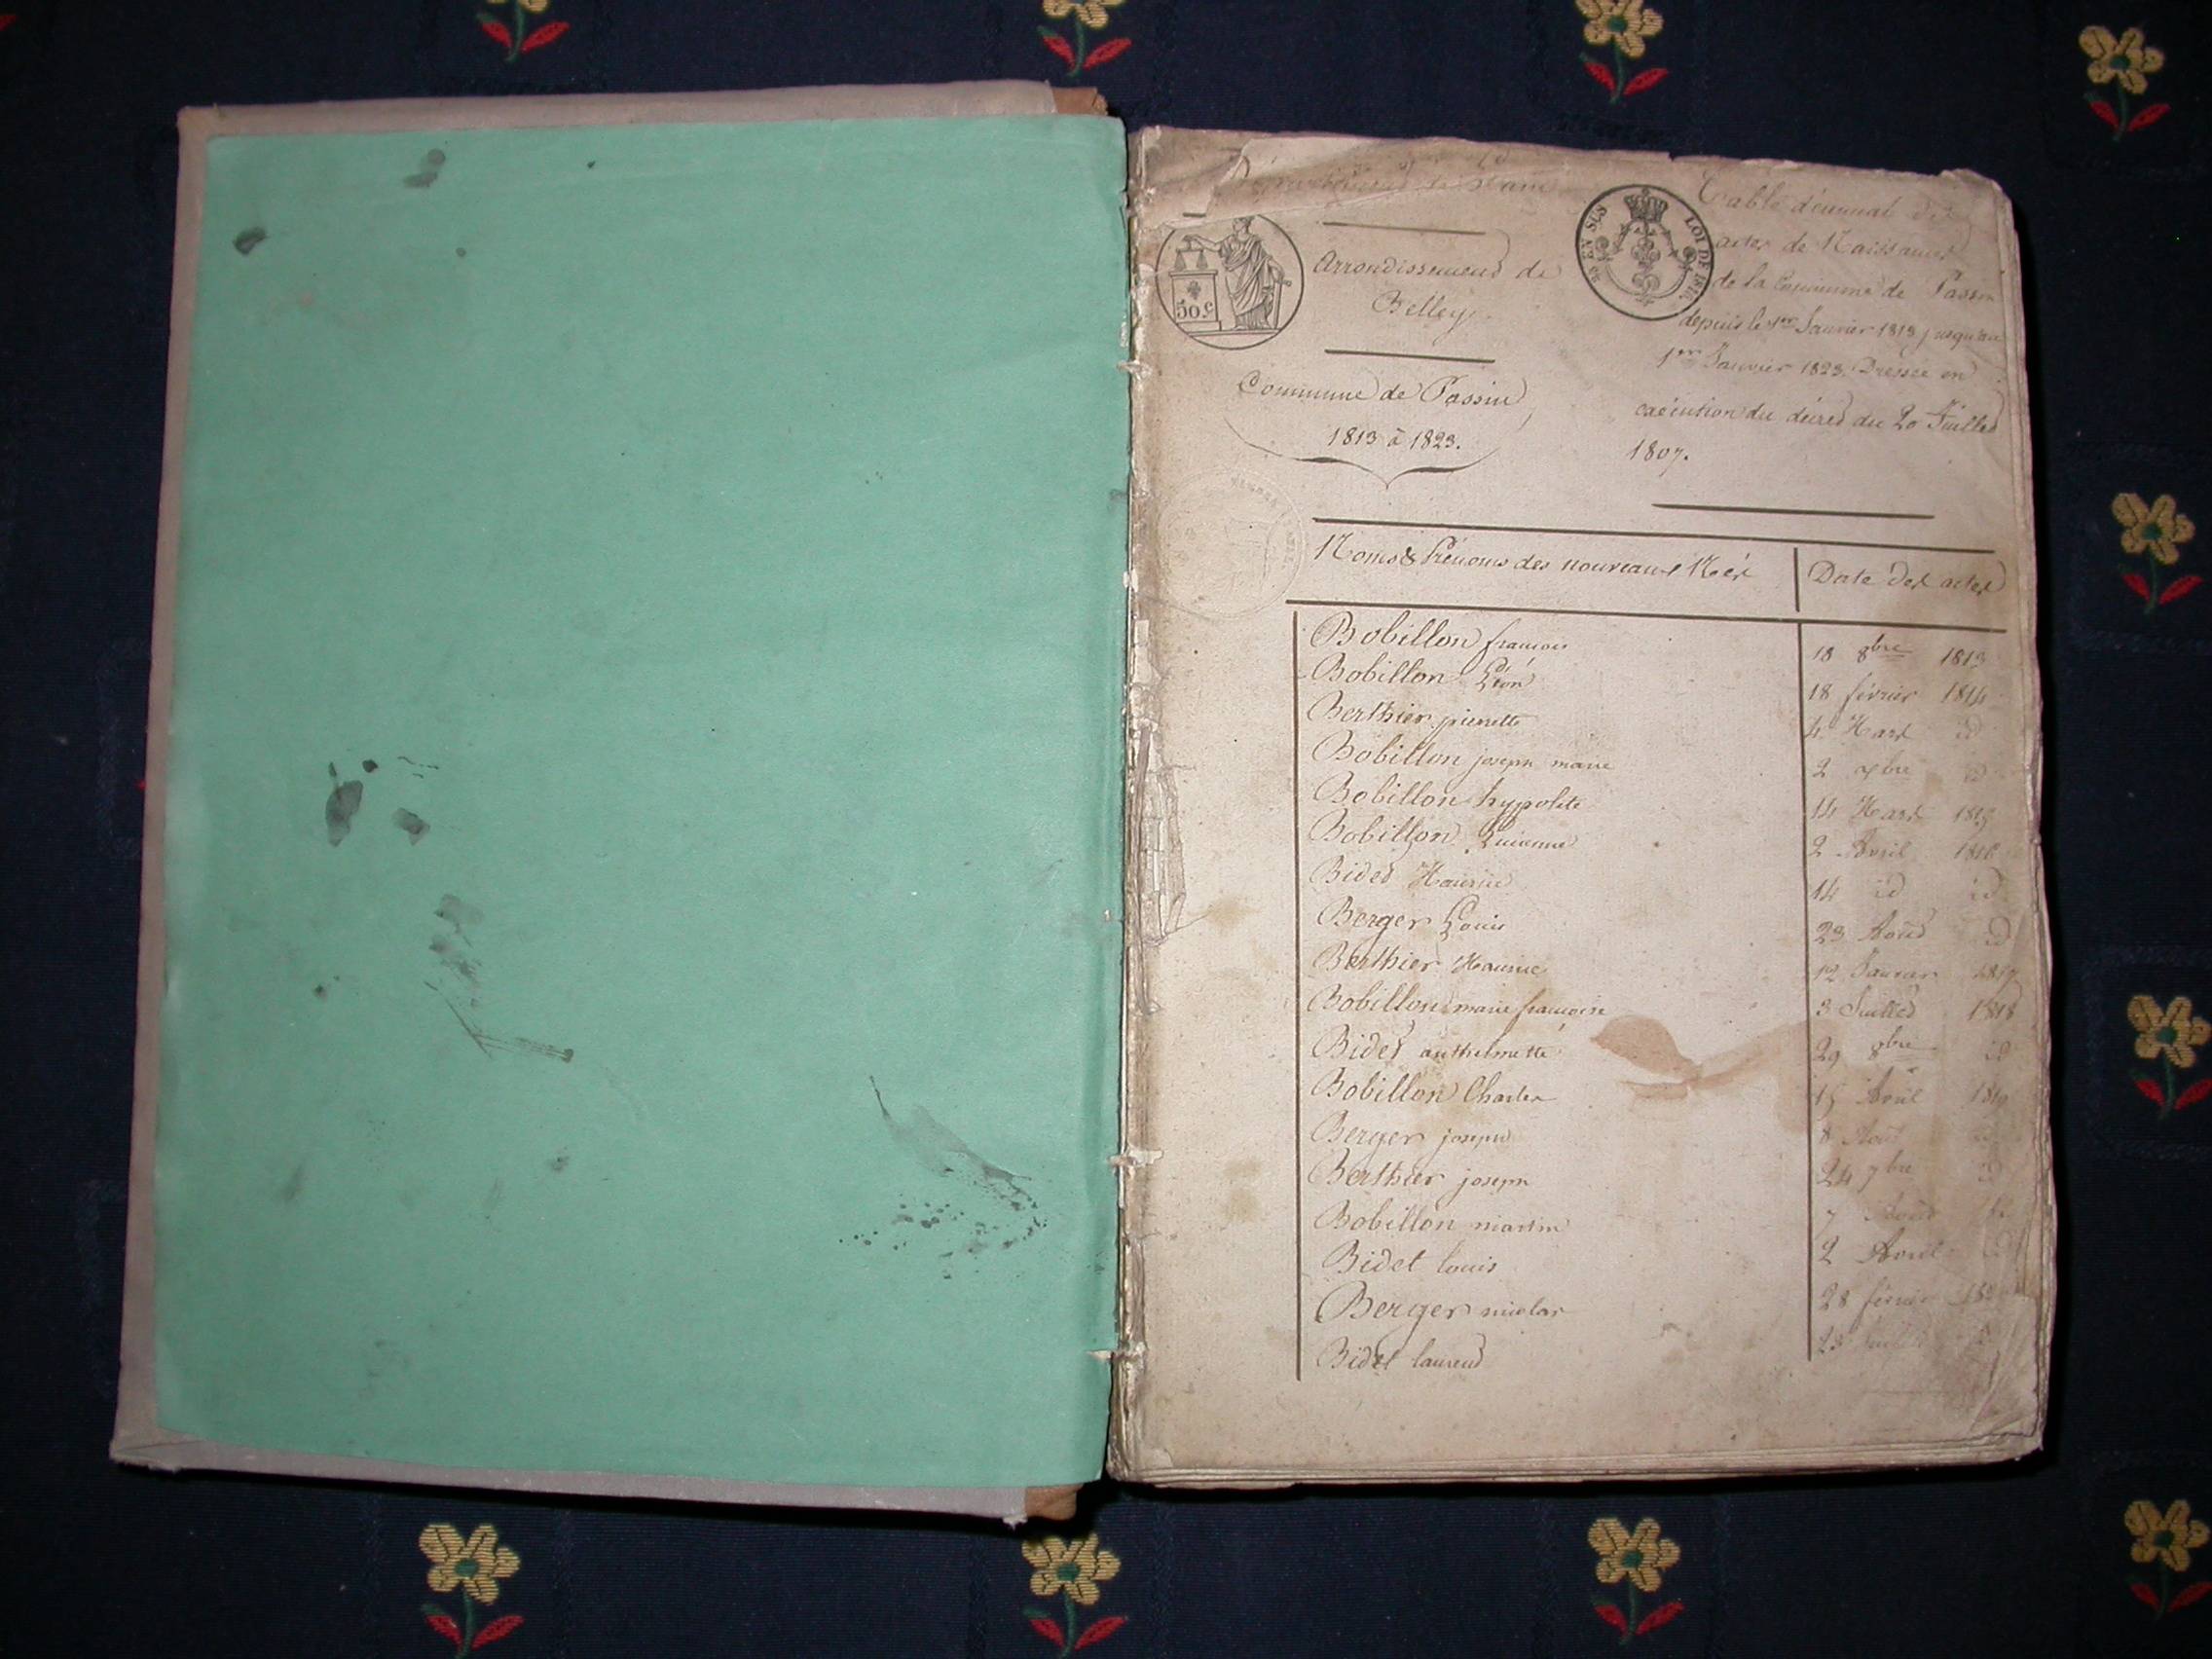 Département de l'ain
Arrondissement de
Belley.
Commune de Passin
1813 à 1823.
50.c
EN SUS
LOI DE 1816
Table décennal des
actes de Naissances
de la Commune de Passin
depuis le 1er Janvier 1813 jusqu'au
1er Janvier 1823. Dressée en
exécution du décret du 20 Juillet
1807.
Noms & Prénoms des nouveaux Nés Date des actes
Bobillon francois 18 8bre 1813
Bobillon Léon 18 février 1814
Berthier pierrette 4 Mars id
Bobillon joseph marie 2 7bre id
Bobillon hyppolite 14 Mars
Bobillon 2 Avril 1816
Bidet Maurice 14 id id
Berger Louis 23 Août id
Berthier Maurice 12 Janvier 1817
Bobillon marie françoise 3 Juillet 1818
Bidet anthelmette 29 8bre id
Bobillon Charles 15 Avril 1819
Berger joseph 8 Août
Berthier joseph 24 7bre id
Bobillon martin 7
Bidet louis 2 Avril id
Berger nicolas 28 février
Bidet laurent Juillet